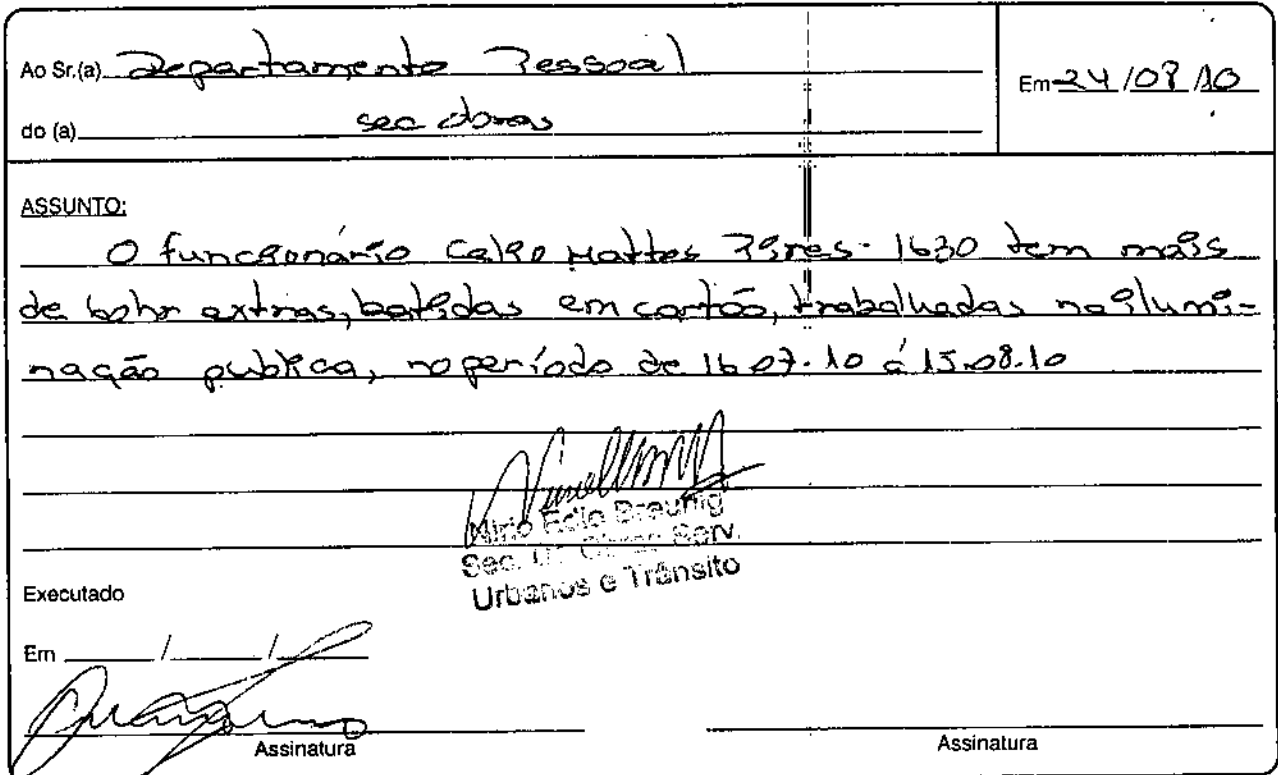 Ao Sr.(a) Departamento Pessoal
Em 24/08/10
do (a) sec obras
ASSUNTO:
O funcionário Celso Mattes Pires - 1630 tem mais
de 60hr extras, batidas em cartão, trabalhadas na ilumi-
nação publica, no período de 16.07.10 á 15.08.10
Mirio Edio Breunig
Sec. de Obras Serv.
Urbanos e Trânsito
Executado
Em / /
Assinatura
Assinatura